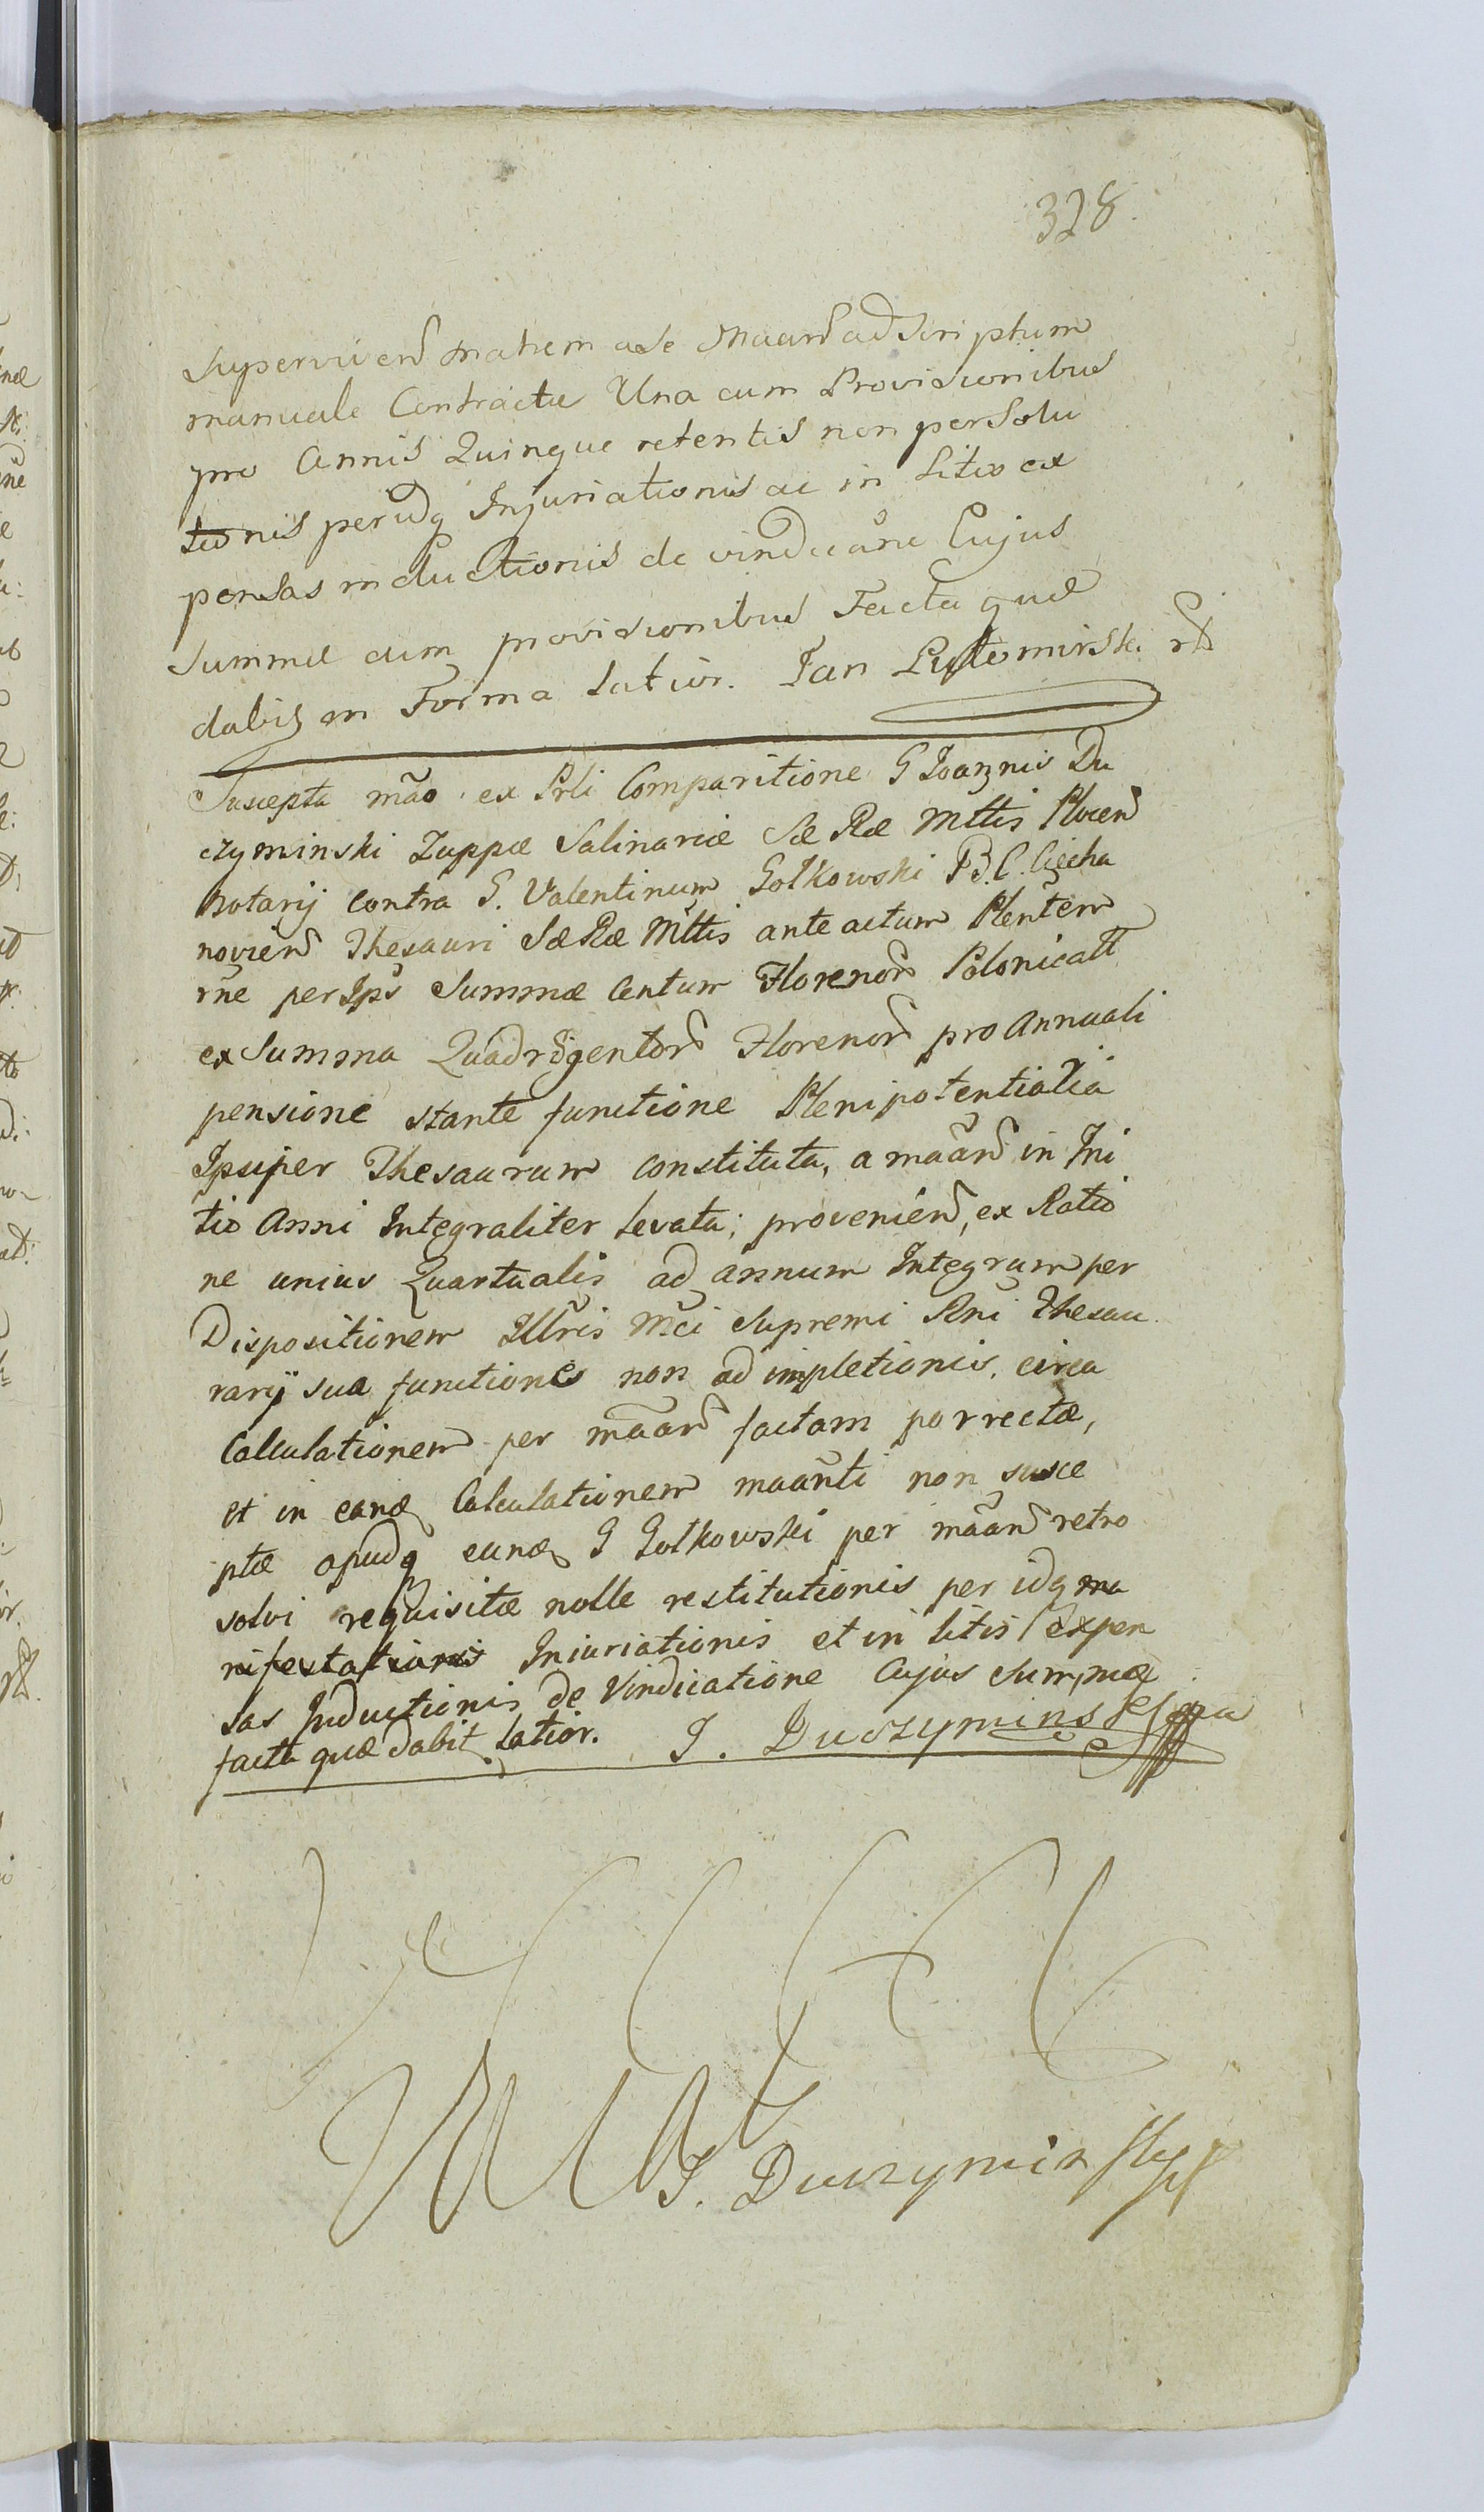 328.
Superviven̄ matrem a se Maan̄ ad Scriptum
manuale Contractæ Una cum Provisionibus
pro Annis Quinque retentis non persolu
tionis per idq Injuriationis ac in Litis ex
pensas inductionis de vindicãne Cujus
Summæ cum provisionibus Facta quæ
dabit in Forma Latior. Jan Lutomirski
Suscepta mão ex Prli Comparitione G Joannis Du
czyminski Zuppæ Salinariæ Sæ Ræ Mttis Plocen̄
Notarij contra G. Valentinum Gołkowski B.C. Ciecha
novien̄ Thesauri Sæ Ræ Mttis ante actum Plentem
rñe per Ips Summæ Centum Florenor̄ Polonicall
ex Summa Quadrigentor̄ Florenor̄ pro Annuali
pensione stante functione Plenipotentialia
Ipsi per Thesaurum constituta, a maan̄ in Ini
tio Anni Integraliter Levata; provenien̄, ex Ratio
ne unius Quartualis ad annum Integrum per
Dispositionem Illris Mci Supremi Rni Thesau
rarij sua functione non adimpletionis, circa
Calculationem per maan̄ factam porrectæ,
et in eand Calculationem maanti non susce
ptæ apudq eund G Gołkowski per maan̄ retro
solvi requisitæ nolle restitutionis per idq ma
nifestationis Iniuriationis et in litis Expen
sas Inductionis de Vindicatione Cujus Summæ
facta quæ dabit Latior. J. Duczyminski
J. Duczyminski